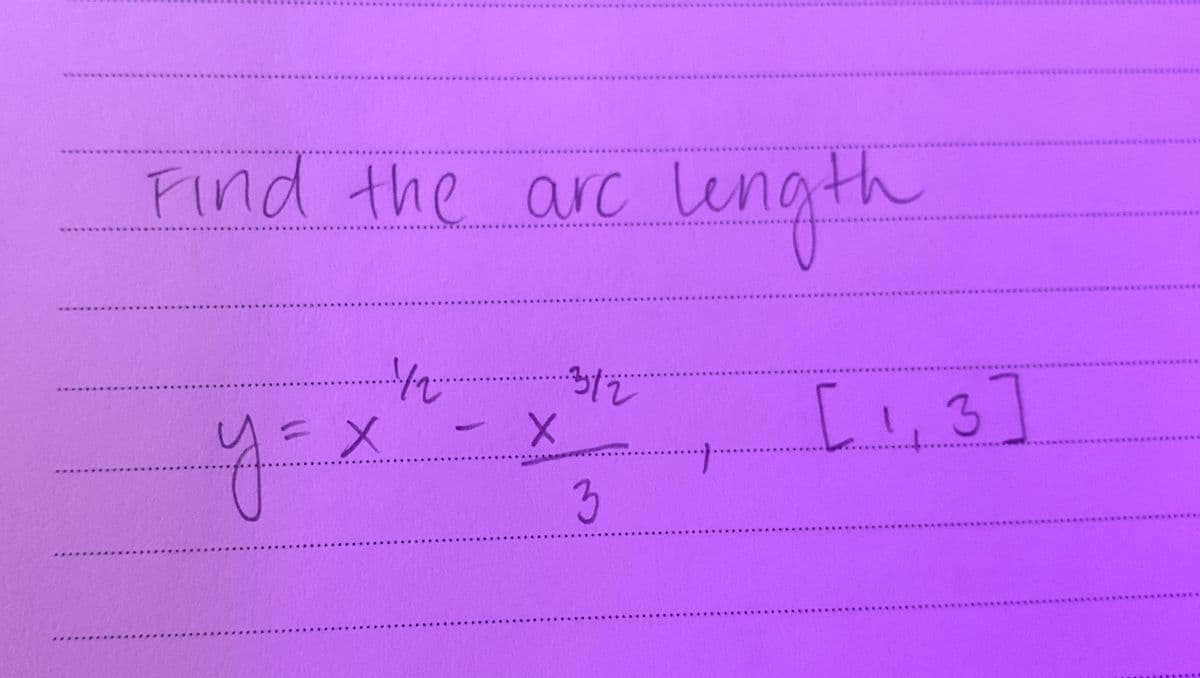 Find the arc length
y = x^1/2 - x^3/2 / 3 , [1, 3]